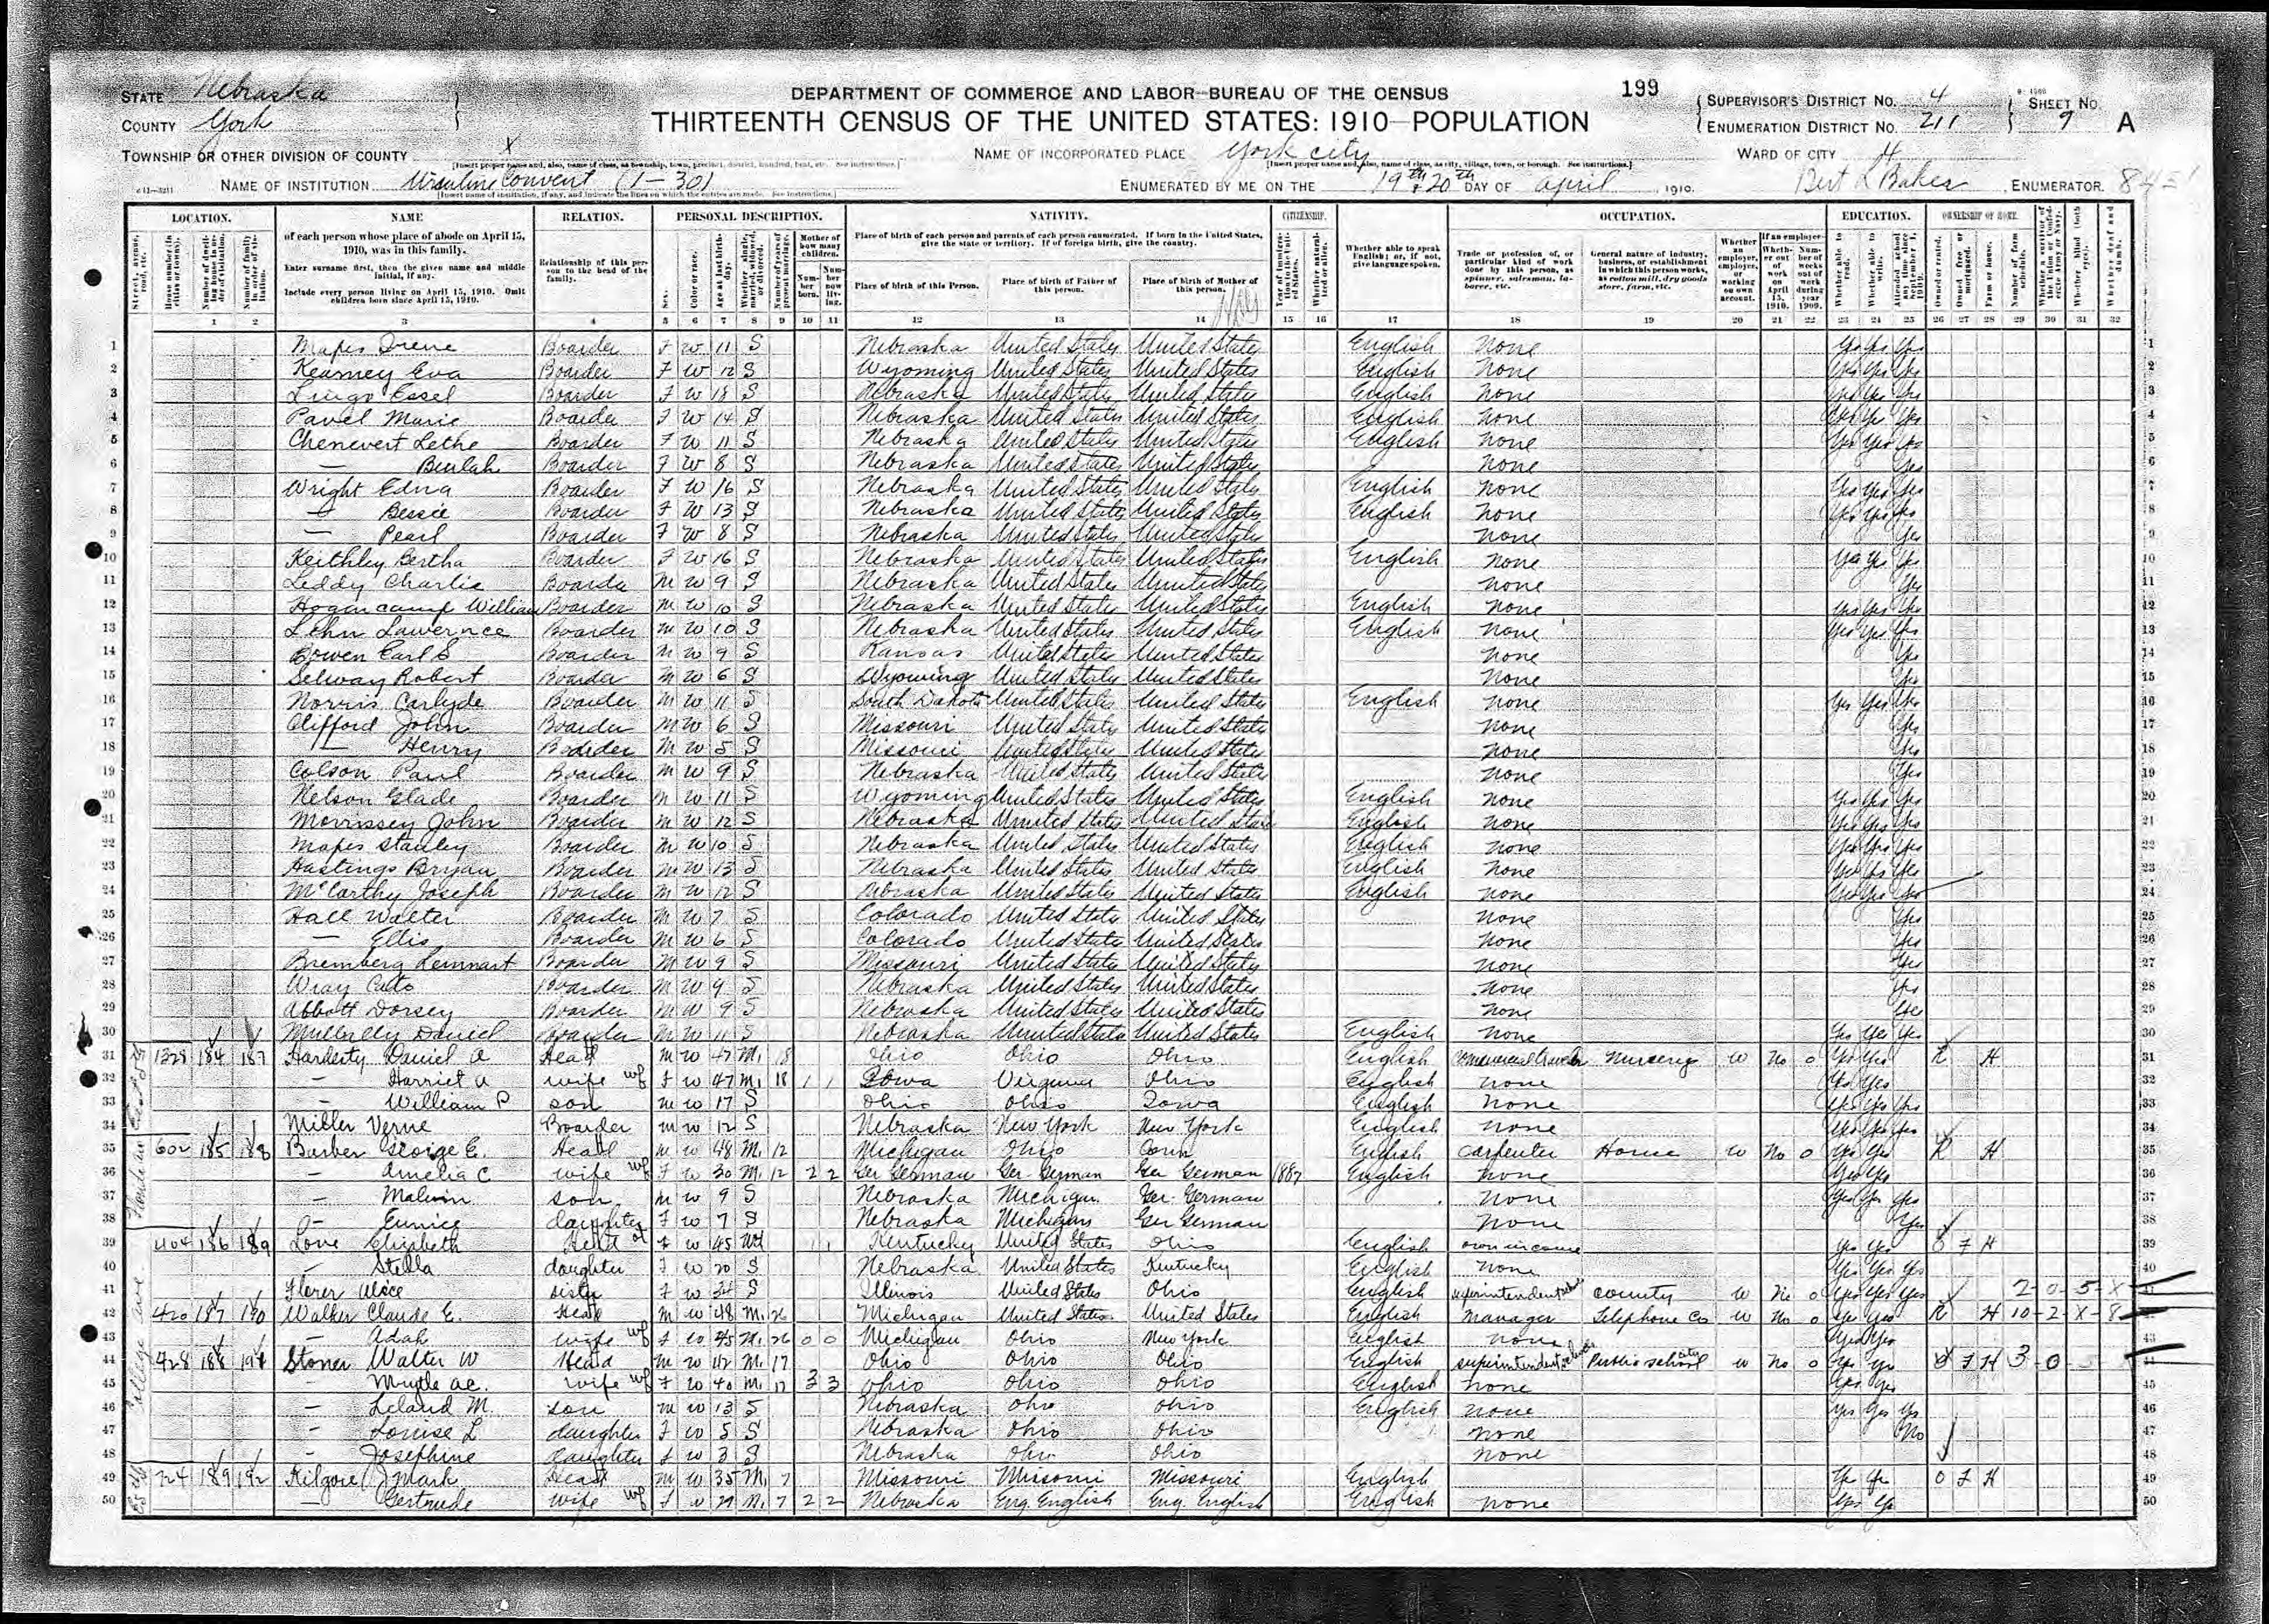 199
DEPARTMENT OF COMMERCE AND LABOR—BUREAU OF THE CENSUS
THIRTEENTH CENSUS OF THE UNITED STATES: 1910—POPULATION
STATE Nebraska
COUNTY York
TOWNSHIP OR OTHER DIVISION OF COUNTY X
NAME OF INSTITUTION Ursuline Convent (1-30)
NAME OF INCORPORATED PLACE York city
ENUMERATED BY ME ON THE 19th & 20th DAY OF April, 1910.
SUPERVISOR'S DISTRICT No. 4
ENUMERATION DISTRICT No. 211
SHEET No. 9 A
WARD OF CITY 4
Bert L Baker, ENUMERATOR.
LOCATION. NAME RELATION. PERSONAL DESCRIPTION. NATIVITY. CITIZENSHIP. OCCUPATION. EDUCATION. OWNERSHIP OF HOME.
of each person whose place of abode on April 15, 1910, was in this family.
Enter surname first, then the given name and middle initial, if any.
Include every person living on April 15, 1910. Omit children born since April 15, 1910.
Relationship of this person to the head of the family.
Place of birth of each person and parents of each person enumerated. If born in the United States, give the state or territory. If of foreign birth, give the country.
Place of birth of this Person. Place of birth of Father of this person. Place of birth of Mother of this person.
Whether able to speak English; or, if not, give language spoken.
Trade or profession of, or particular kind of work done by this person, as spinner, salesman, laborer, etc.
General nature of industry, business, or establishment in which this person works, as cotton mill, dry goods store, farm, etc.
1 2 3 4 5 6 7 8 9 10 11 12 13 14 15 16 17 18 19 20 21 22 23 24 25 26 27 28 29 30 31 32
1 Mapes Irene Boarder F W 11 S Nebraska United States United States English None Yes Yes Yes
2 Kearney Eva Boarder F W 12 S Wyoming United States United States English None Yes Yes Yes
3 Lingo Essel Boarder F W 18 S Nebraska United States United States English None Yes Yes Yes
4 Pavel Marie Boarder F W 14 S Nebraska United States United States English None Yes Yes Yes
5 Chenevert Lethe Boarder F W 11 S Nebraska United States United States English None Yes Yes Yes
6 — Beulah Boarder F W 8 S Nebraska United States United States None Yes
7 Wright Edna Boarder F W 16 S Nebraska United States United States English None Yes Yes Yes
8 — Bessie Boarder F W 13 S Nebraska United States United States English None Yes Yes Yes
9 — Pearl Boarder F W 8 S Nebraska United States United States None Yes
10 Keithley Bertha Boarder F W 16 S Nebraska United States United States English None Yes Yes Yes
11 Leddy Charlie Boarder M W 9 S Nebraska United States United States None Yes
12 Hogancamp William Boarder M W 10 S Nebraska United States United States English None Yes Yes Yes
13 Lehn Lawernce Boarder M W 10 S Nebraska United States United States English None Yes Yes Yes
14 Bowen Earl S Boarder M W 9 S Kansas United States United States None Yes
15 Selway Robert Boarder M W 6 S Wyoming United States United States None Yes
16 Norris Carlyde Boarder M W 11 S South Dakota United States United States English None Yes Yes Yes
17 Clifford John Boarder M W 6 S Missouri United States United States None Yes
18 — Henry Boarder M W 5 S Missouri United States United States None Yes
19 Colson Paul Boarder M W 9 S Nebraska United States United States None Yes
20 Nelson Glade Boarder M W 11 S Wyoming United States United States English None Yes Yes Yes
21 Morrissey John Boarder M W 12 S Nebraska United States United States English None Yes Yes Yes
22 Mapes Stanley Boarder M W 10 S Nebraska United States United States English None Yes Yes Yes
23 Hastings Bryan Boarder M W 13 S Nebraska United States United States English None Yes Yes Yes
24 McCarthy Joseph Boarder M W 12 S Nebraska United States United States English None Yes Yes Yes
25 Hall Walter Boarder M W 7 S Colorado United States United States None Yes
26 — Ellis Boarder M W 6 S Colorado United States United States None Yes
27 Bremberg Lennart Boarder M W 9 S Missouri United States United States None Yes
28 Wray Boarder M W 9 S Nebraska United States United States None Yes
29 Abbott Dorsey Boarder M W 9 S Nebraska United States United States None Yes
30 Mullally Daniel Boarder M W 11 S Nebraska United States United States English None Yes Yes Yes
31 1328 184 187 Hardesty Daniel A Head M W 47 M1 18 Ohio Ohio Ohio English Commercial Traveler Nursery W No 0 Yes Yes R H
32 — Harriet A wife F W 47 M1 18 1 1 Iowa Virginia Ohio English None Yes Yes
33 — William P son M W 17 S Ohio Ohio Iowa English None Yes Yes Yes
34 Miller Verne Boarder M W 12 S Nebraska New York New York English None Yes Yes Yes
35 602 185 188 Barber George E. Head M W 48 M1 12 Michigan Ohio Conn English Carpenter House W No 0 Yes Yes R H
36 — Amelia C wife F W 30 M1 12 2 2 Ger German Ger German Ger German 1887 English None Yes Yes
37 — Malvin son M W 9 S Nebraska Michigan Ger German None Yes Yes Yes
38 — Eunice daughter F W 7 S Nebraska Michigan Ger German None Yes
39 404 186 189 Love Elizabeth Head F W 45 Wd 1 1 Kentucky United States Ohio English own income Yes Yes O F H
40 — Stella daughter F W 20 S Nebraska United States Kentucky English None Yes Yes Yes
41 Florer Alice sister F W 34 S Illinois United States Ohio English superintendent county W No 0 Yes Yes Yes 2-0-5-X
42 420 187 190 Walker Claude E. Head M W 48 M1 26 Michigan United States United States English Manager Telephone Co W No 0 Yes Yes R H 10-2-X-8
43 — Adah wife F W 45 M1 26 0 0 Michigan Ohio New York English None Yes Yes
44 428 188 191 Stoner Walter W Head M W 42 M1 17 Ohio Ohio Ohio English superintendent Public school W No 0 Yes Yes O F H 3-0
45 — Myrtle wife F W 40 M1 17 3 3 Ohio Ohio Ohio English None Yes Yes
46 — Leland M. son M W 13 S Nebraska Ohio Ohio English None Yes Yes Yes
47 — Louise L daughter F W 5 S Nebraska Ohio Ohio None No
48 — Josephine daughter F W 3 S Nebraska Ohio Ohio None
49 724 189 192 Kilgore J Mark Head M W 35 M1 7 Missouri Missouri Missouri English Yes Yes O F H
50 — Gertrude wife F W 29 M1 7 2 2 Nebraska Eng. English Eng. English English None Yes Yes